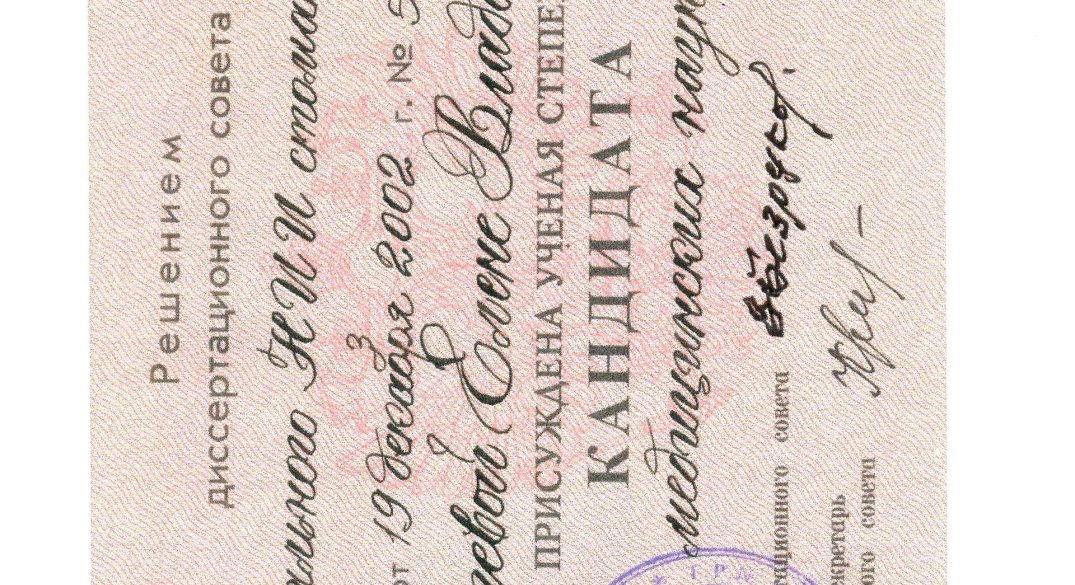 Решением
диссертационного совета
ального НИИ стома
от 19 декабря 2002 г. № 5
евой Елене Влад
ПРИСУЖДЕНА УЧЕНАЯ СТЕПЕ
КАНДИДАТА
медицинских наук
ационного совета
екретарь
ого совета